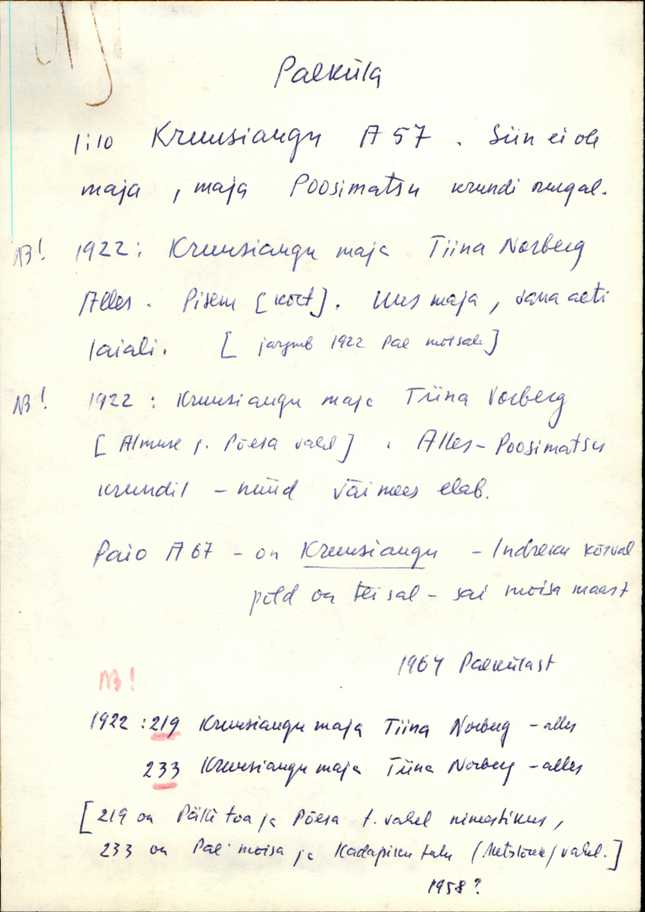 Palküla
1:10 Kruusiaugu A 57. Siin ei ole
maja, maja Poosimatsu krundi nurgal.
NB! 1922: Kruusiaugu maja Tiina Norberg
Alles. Pisem [koht]. Uus maja, vana aeti
laiali. [järgneb 1922 Pal mõisale]
NB! 1922: Kruusiaugu maja Tiina Norberg
[Almuse j. Põesa vahel]. Alles - Poosimatsu
krundil - nüüd väimees elab.
Paio A 67 - on Kruusiaugu - Indreku kõrval
põld on teisal - sai mõisa maast
1964 Palkülast
NB!
1922: 219 Kruusiaugu maja Tiina Norberg - alles
233 Kruusiaugu maja Tiina Norberg - alles
[219 on toa ja Põesa t. vahel nimestikus,
233 on Pal mõisa ja Kadapiku talu vahel.]
1958?